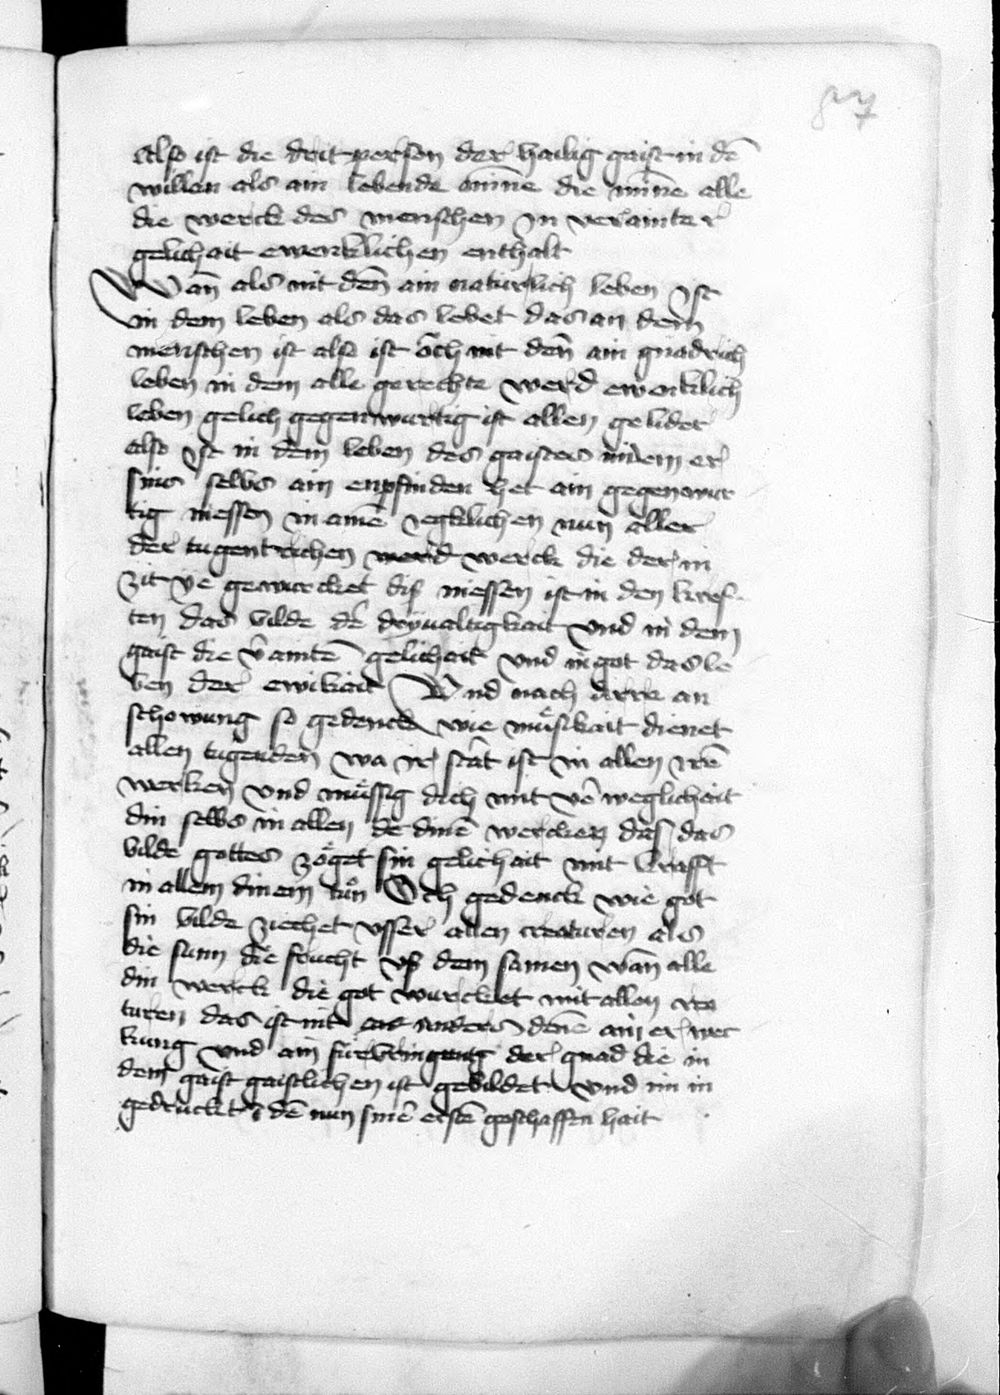 87
Also ist die drit person der hailig gaist in dē
willen als ain lebende minne die minē alle
die werck des menschen in verainter
gelichait ewenklichen enthalt
Wan als nit den ain naturlich leben ist
in dem leben als das lebet das an dem
menschen ist also ist och nit den ain gnadrich
leben in dem alle gerechte werd ewenklich
leben gelich gegenwurtig ist allen gelider
also ist in dem leben des gaistes in dem er
sins selbs ain enpfinden het ain gegenwur
tig niessen in aine yegklichen nun aller
der tugentlichen werck die der in
zit ye gewurcket dis niessen ist in den kref
ten das bilde dē dryualtigkait vnd in dem
gaist die v̄ainten gelichait vnd in got das le
ben der ewikait Vnd nach dirre an
schowung so gedenck wie müsikait dienet
allen tugenden wa ir stat ist in allen irē
werken vnd müssig dich mit vē weglichait
din selbs in allen dinē wercken das das
bilde gottes zöget sin gelichait mit krafft
in allem dinem tůn Och gedenck wie got
sin bilde ziechet vsser allen creaturen als
die sunn die frucht vs dem samen wan alle
din werck die got wurcket mit allen crea
turen das ist nit anders denē ain er wec
kung vnd ain fürbringung der gnad die in
dem gaist gaistlichen ist gebildet vnd im in
gedruckt dē nun sinē ersten geschaffen hait